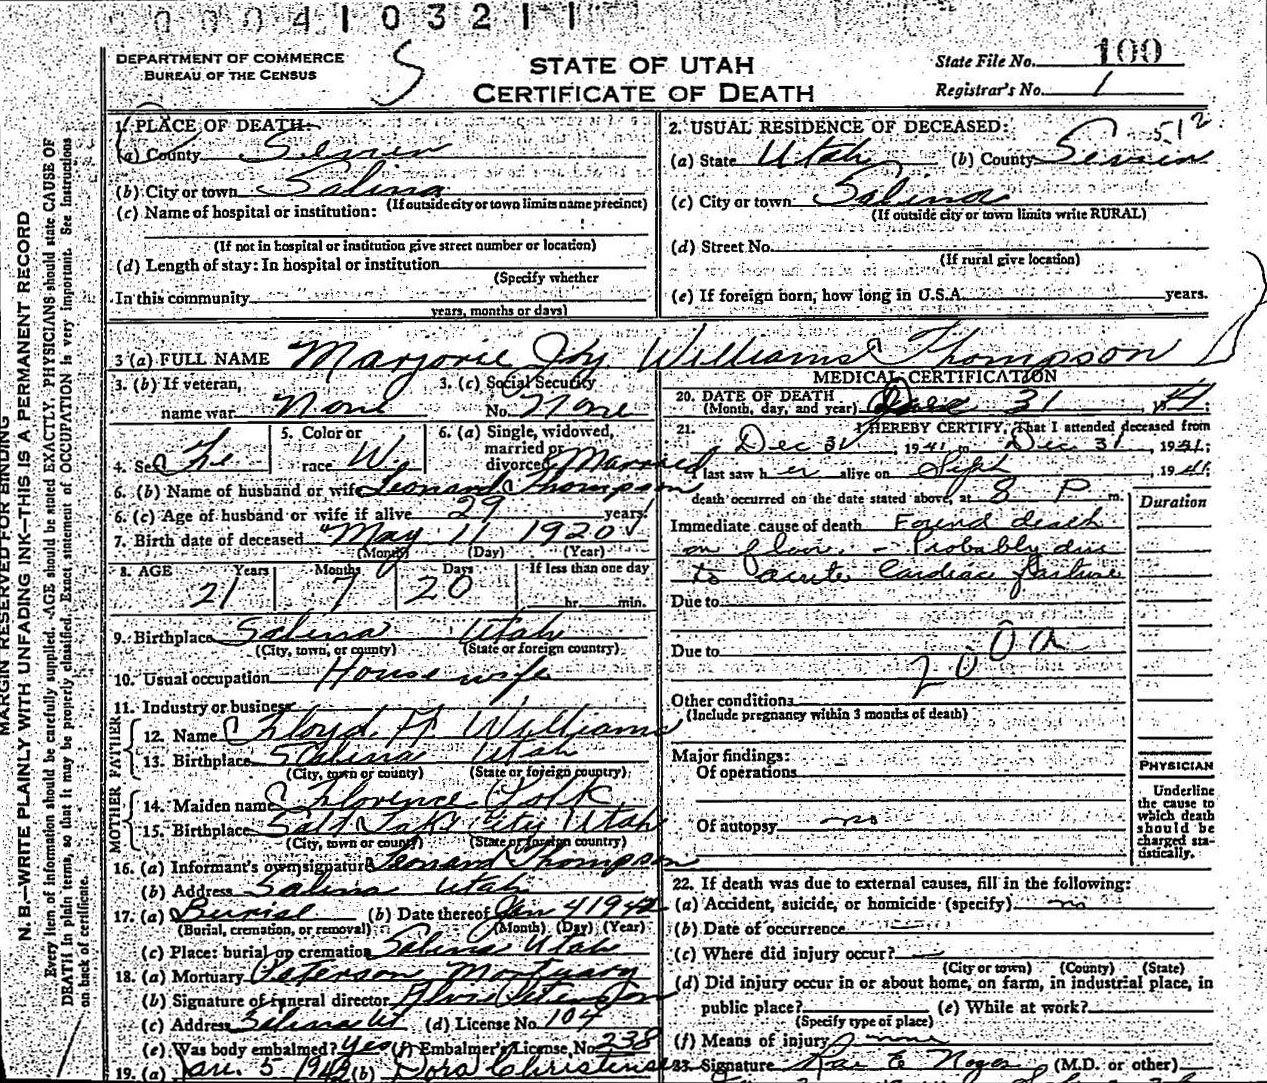 0004103211
DEPARTMENT OF COMMERCE
BUREAU OF THE CENSUS
S
STATE OF UTAH
CERTIFICATE OF DEATH
State File No. 100
Registrar's No. 1
MARGIN RESERVED FOR BINDING
N. B.—WRITE PLAINLY WITH UNFADING INK—THIS IS A PERMANENT RECORD
Every item of information should be carefully supplied. AGE should be stated EXACTLY. PHYSICIANS should state CAUSE OF
DEATH in plain terms, so that it may be properly classified. Exact statement of OCCUPATION is very important. See instructions
on back of certificate.
1. PLACE OF DEATH:
(a) County Sevier
(b) City or town Salina
(If outside city or town limits name precinct)
(c) Name of hospital or institution:
(If not in hospital or institution give street number or location)
(d) Length of stay: In hospital or institution
(Specify whether
In this community
years, months or days)
2. USUAL RESIDENCE OF DECEASED: 512
(a) State Utah (b) County Sevier
(c) City or town Salina
(If outside city or town limits write RURAL)
(d) Street No.
(If rural give location)
(e) If foreign born, how long in U.S.A. years.
3 (a) FULL NAME Marjorie Joy Williams Thompson
3. (b) If veteran,
name war None
3. (c) Social Security
No. None
4. Sex Fe
5. Color or
race W
6. (a) Single, widowed,
married or
divorced Married
6. (b) Name of husband or wife Leonard Thompson
6. (c) Age of husband or wife if alive 29 years
7. Birth date of deceased May 11 1920
(Month) (Day) (Year)
8. AGE Years Months Days If less than one day
21 7 20 hr. min.
9. Birthplace Salina Utah
(City, town, or county) (State or foreign country)
10. Usual occupation House wife
11. Industry or business
FATHER
12. Name Floyd H Williams
13. Birthplace Salina Utah
(City, town or county) (State or foreign country)
MOTHER
14. Maiden name Florence Folk
15. Birthplace Salt Lake City Utah
(City, town or county) (State or foreign country)
16. (a) Informant's own signature Leonard Thompson
(b) Address Salina Utah
17. (a) Burial (b) Date thereof Jan 4 1942
(Burial, cremation, or removal) (Month) (Day) (Year)
(c) Place: burial or cremation Salina Utah
18. (a) Mortuary Peterson Mortuary
(b) Signature of funeral director
(c) Address Salina Ut (d) License No. 104
(e) Was body embalmed? Yes (f) Embalmer's License No. 238
19. (a) Jan. 5 1942 (b) Dora Christensen
MEDICAL CERTIFICATION
20. DATE OF DEATH
(Month, day, and year) Dec 31, 41;
21. I HEREBY CERTIFY, That I attended deceased from
Dec 31, 1941 to Dec 31 1941;
I last saw her alive on Sept 1941
death occurred on the date stated above, at 8 P m.
Duration
Immediate cause of death Found death
on floor. - Probably due
to acute cardiac failure
Due to
Due to
200a
Other conditions
(Include pregnancy within 3 months of death)
Major findings:
Of operations
Of autopsy no
PHYSICIAN
Underline
the cause to
which death
should be
charged sta-
tistically.
22. If death was due to external causes, fill in the following:
(a) Accident, suicide, or homicide (specify) no
(b) Date of occurrence
(c) Where did injury occur?
(City or town) (County) (State)
(d) Did injury occur in or about home, on farm, in industrial place, in
public place? (e) While at work?
(Specify type of place)
(f) Means of injury none
23. Signature Rae E Noyes (M.D. or other)